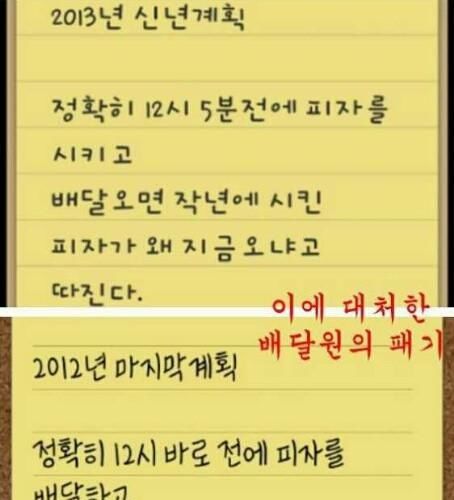 2013년 신년계획
정확히 12시 5분전에 피자를
시키고
배달오면 작년에 시킨
피자가 왜 지금오냐고
따진다.
이에 대처한
배달원의 패기
2012년 마지막계획
정확히 12시 바로 전에 피자를
배달하고